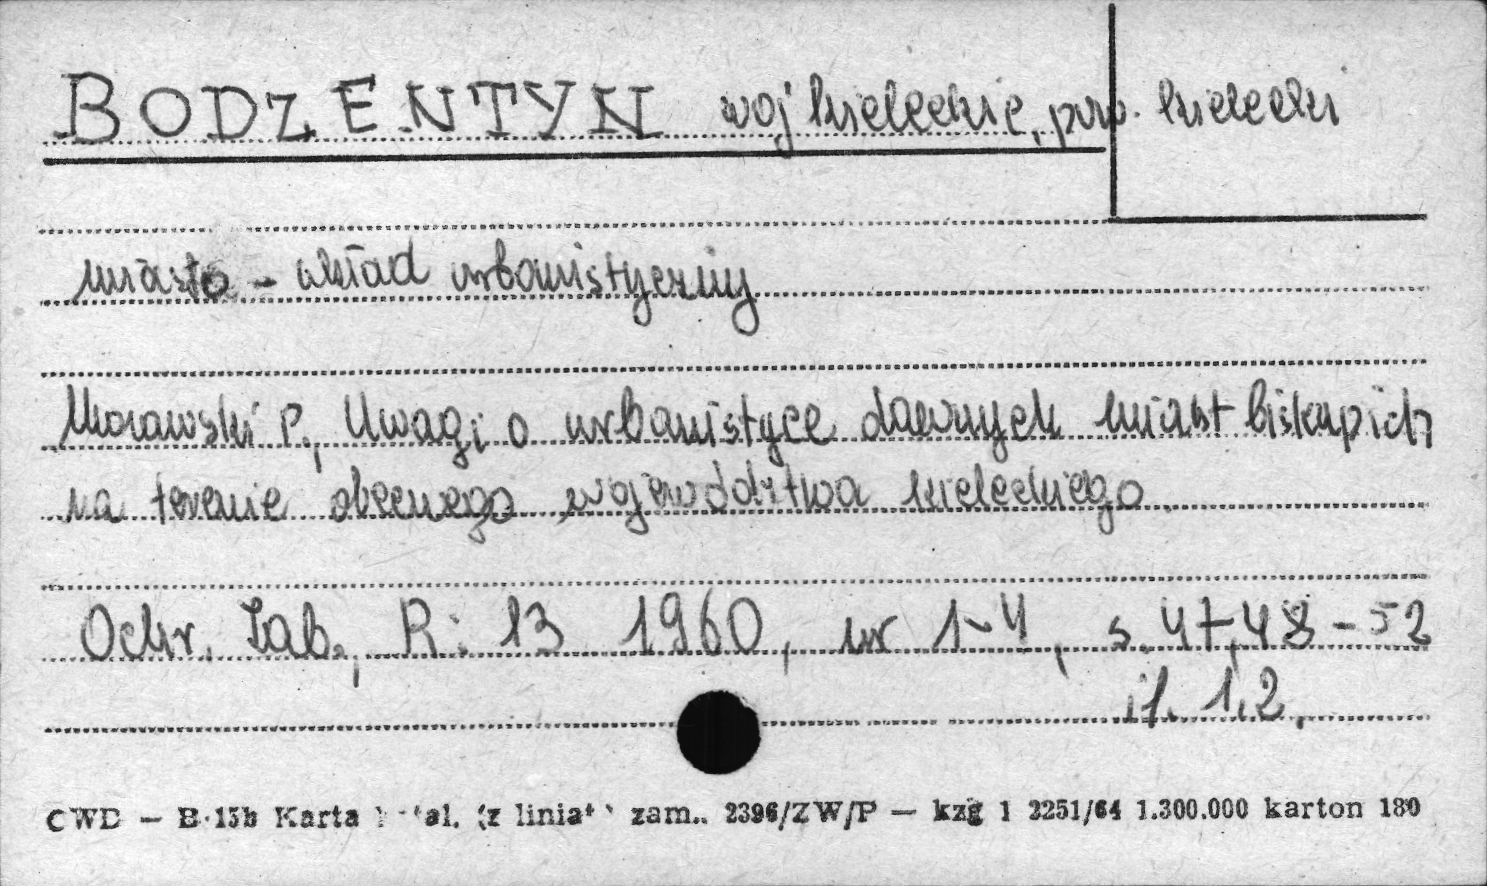 BODZENTYN woj kieleckie, pow. kielecki
miasto - układ urbanistyczny
Morawski P., Uwagi o urbanistyce dawnych miast biskupich
na terenie obecnego województwa kieleckiego
Ochr. Zab., R: 13 1960, nr 1-4, s. 47, 48 - 52
il. 1, 2,
CWD — B-15b Karta zam.. 2396/ZW/P — kzg 1 2251/64 1.300.000 karton 180